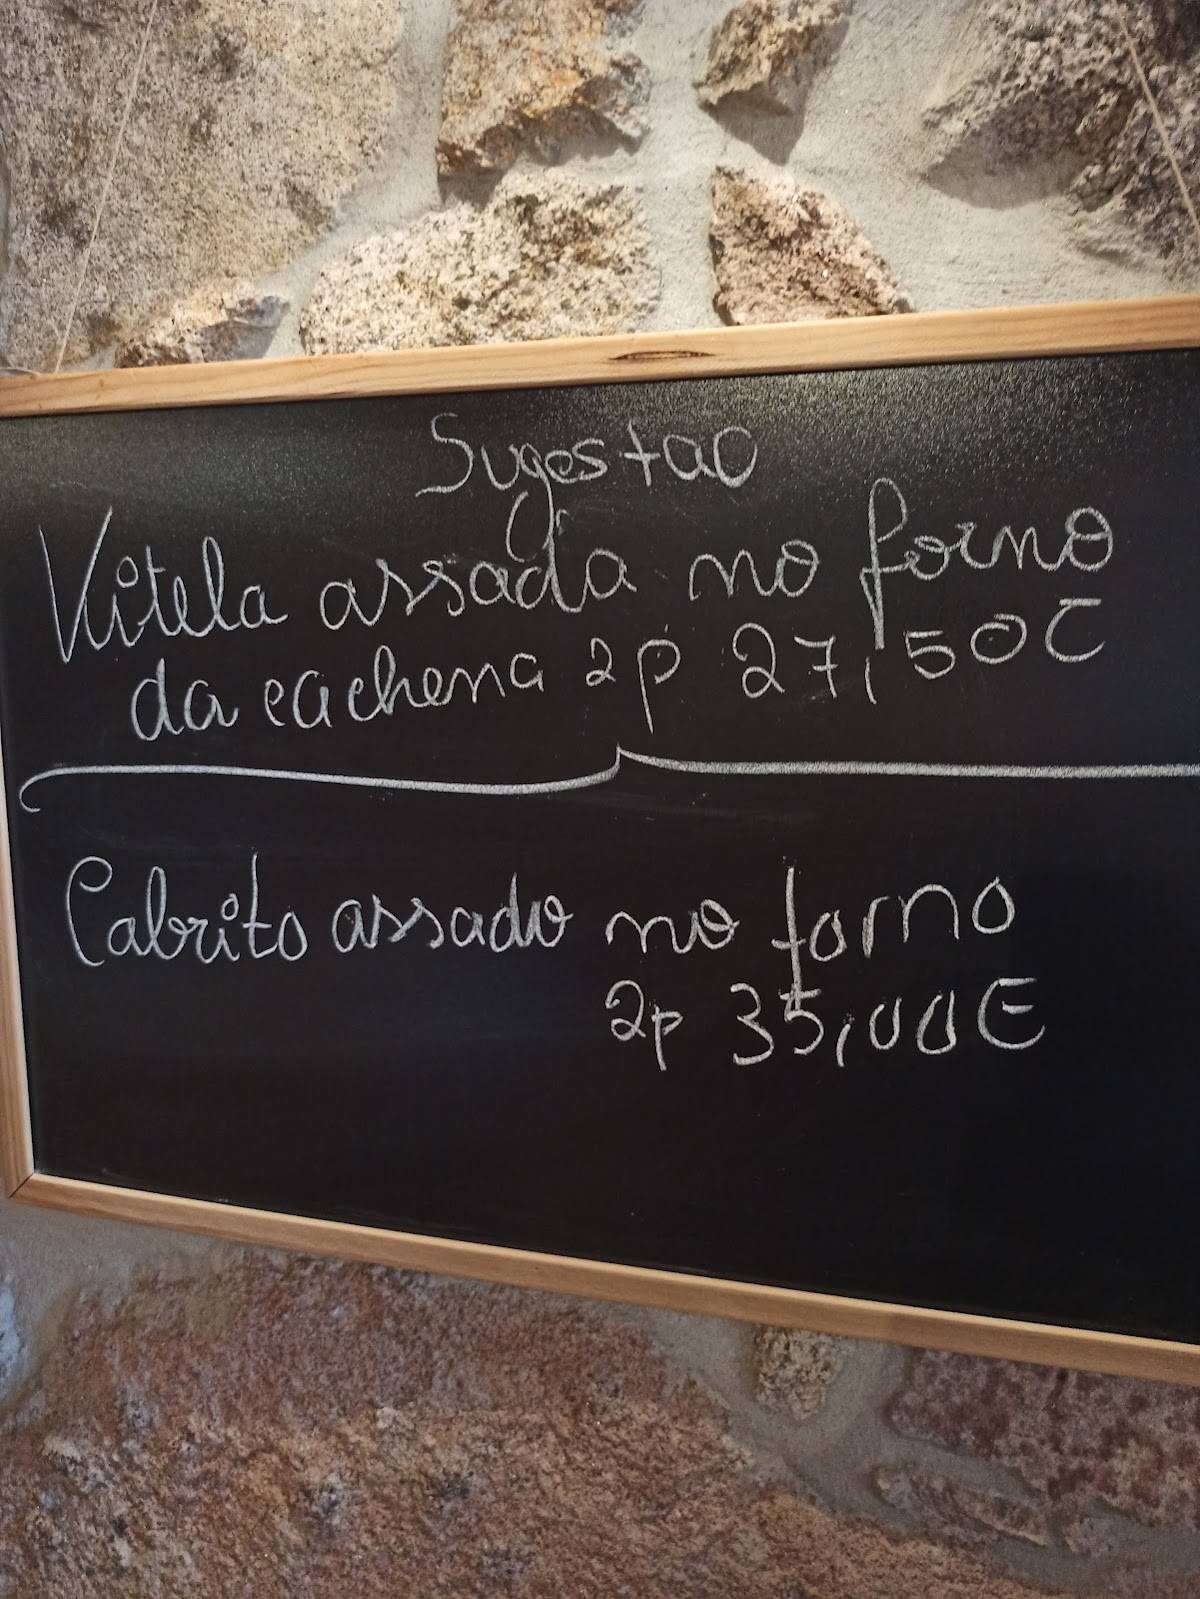 Sugestao
Vitela assada no forno
da cachena 2p 27,50€
Cabrito assado no forno
2p 35,00€